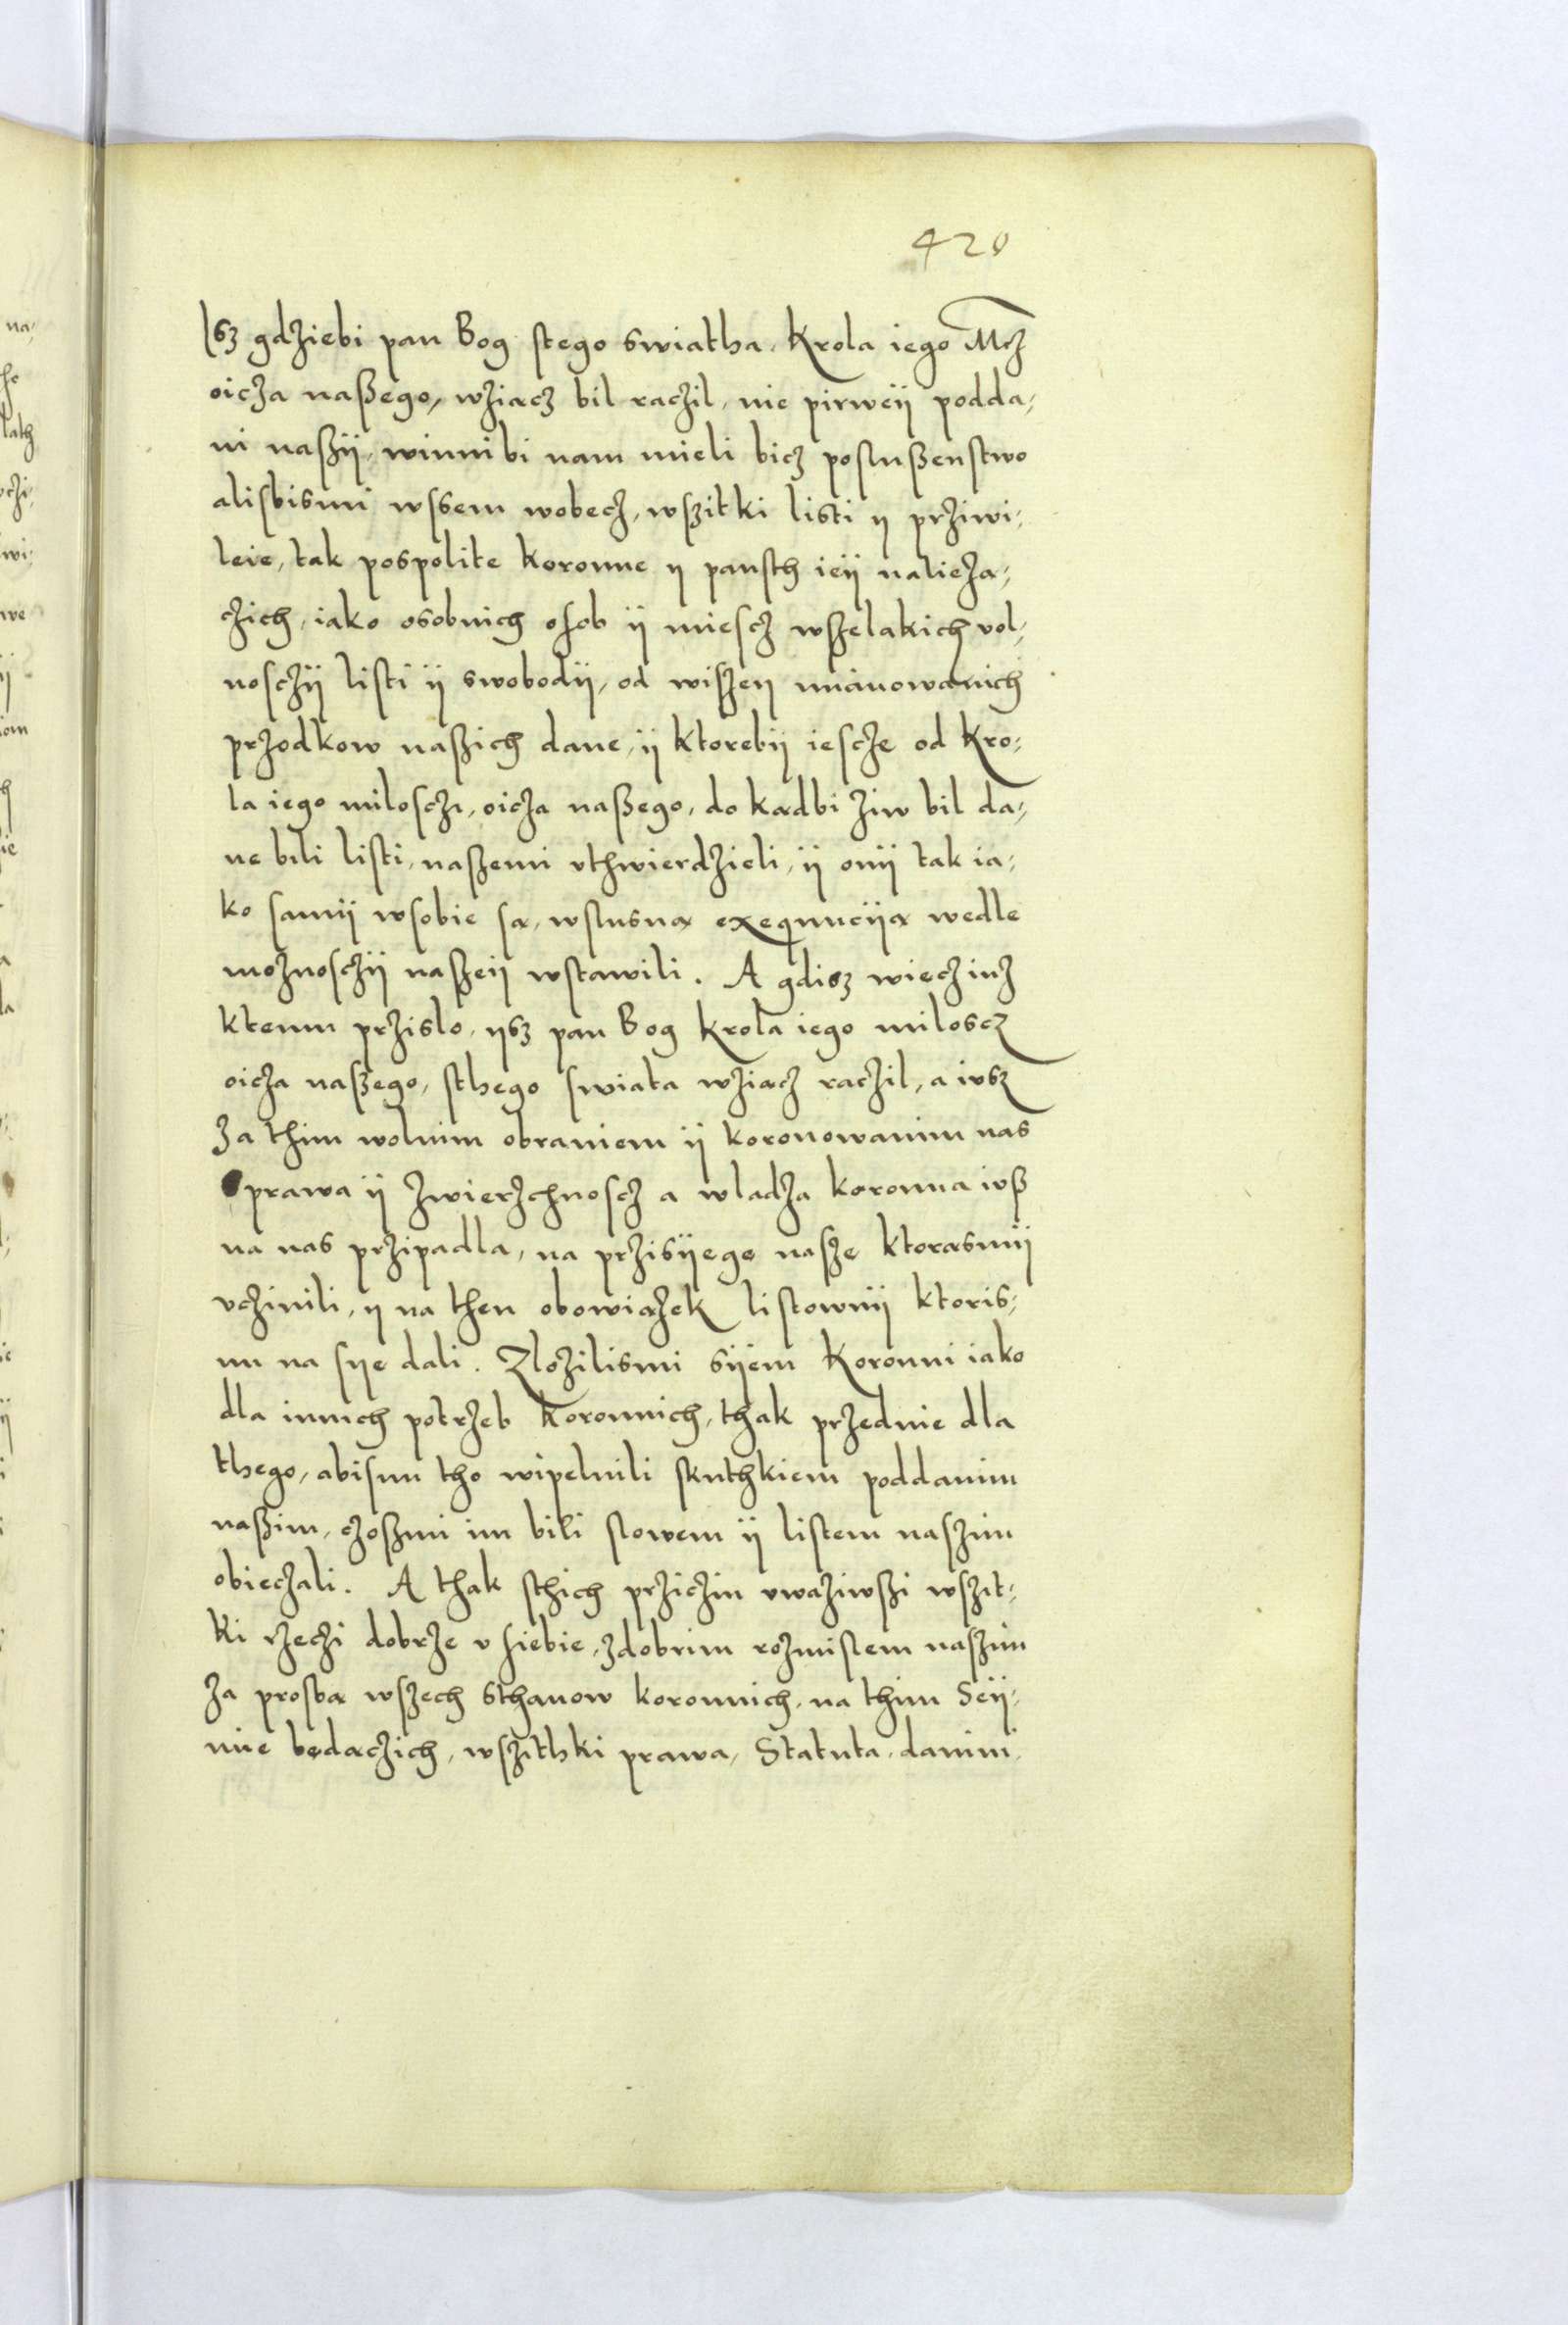 420
Isz gdziebi pan Bog stego swiatha, Krola iego Mcz
oicza naßego, wziącz bil raczil, nie pirweÿ podda⸗
ni naßÿ, winni bi nam mieli bicz posłußenstwo
alisbismi wssem wobecz, wszitki listi y prziwi⸗
leie, tak pospolite koronne y pansth ieÿ nalieżą⸗
czich, iako osobnich osob ÿ miescz wszelakich vol⸗
nosczÿ listi ÿ swobodÿ, od wiszeÿ mianowanich
przodkow naßich dane, ÿ ktorebÿ iescze od Kro⸗
la iego miloschi, oicza naßego, do kądbi ziw bil da⸗
ne bili listi, naszemi vthwierdzieli, ÿ onÿ tak ia⸗
ko samÿ wsobie są, wslusną exequuciją wedle
moznosczÿ naszeÿ wstawili. A gdisz wiecz iuz
ktemu przislo, ysz pan Bog Krola iego miloscz
oicza naszego, sthego swiata wziącz raczil, a iusz
za thim wolnim obraniem ÿ koronowanim nas
sprawa ÿ zwierzchnoscz a wladza koronna iuß
na nas przipadla, na przisÿege nasze ktorąsmÿ
vczinili, y na then obowiązek listownÿ ktoris⸗
mi na sye dali. Zlozilismi sÿem Koronni iako
dla innich potrzeb koronnich, thak przednie dla
thego, abismi tho wipelnili skuthkiem poddanim
naßim, czoßmi im bili slowem ÿ listem naszim
obieczali. A thak sthich prziczin vwaziwszi wszit⸗
ki rzeczi dobrze v siebie, zdobrim rozmislem naszim
za prosbą wszech sthanow koronnich, na thim Seÿ⸗
mie będączich, wszithki prawa, Statuta, danini,